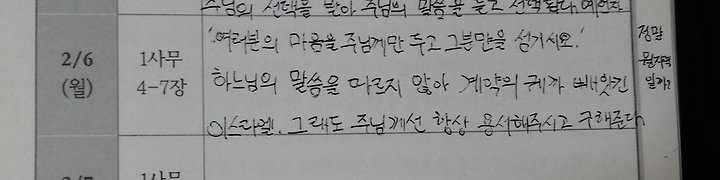 주님의 선택을 받아 주님의 말씀을 듣고 선택된다. 예언자
2/6
(월)
1사무
4-7장
'여러분의 마음을 주님께만 두고 그분만을 섬기시오.'
하느님의 말씀을 따르지 않아 계약의 궤가 빼앗긴
이스라엘. 그래도 주님께선 항상 용서해주시고 구해준다.
정말
일까?
1사무